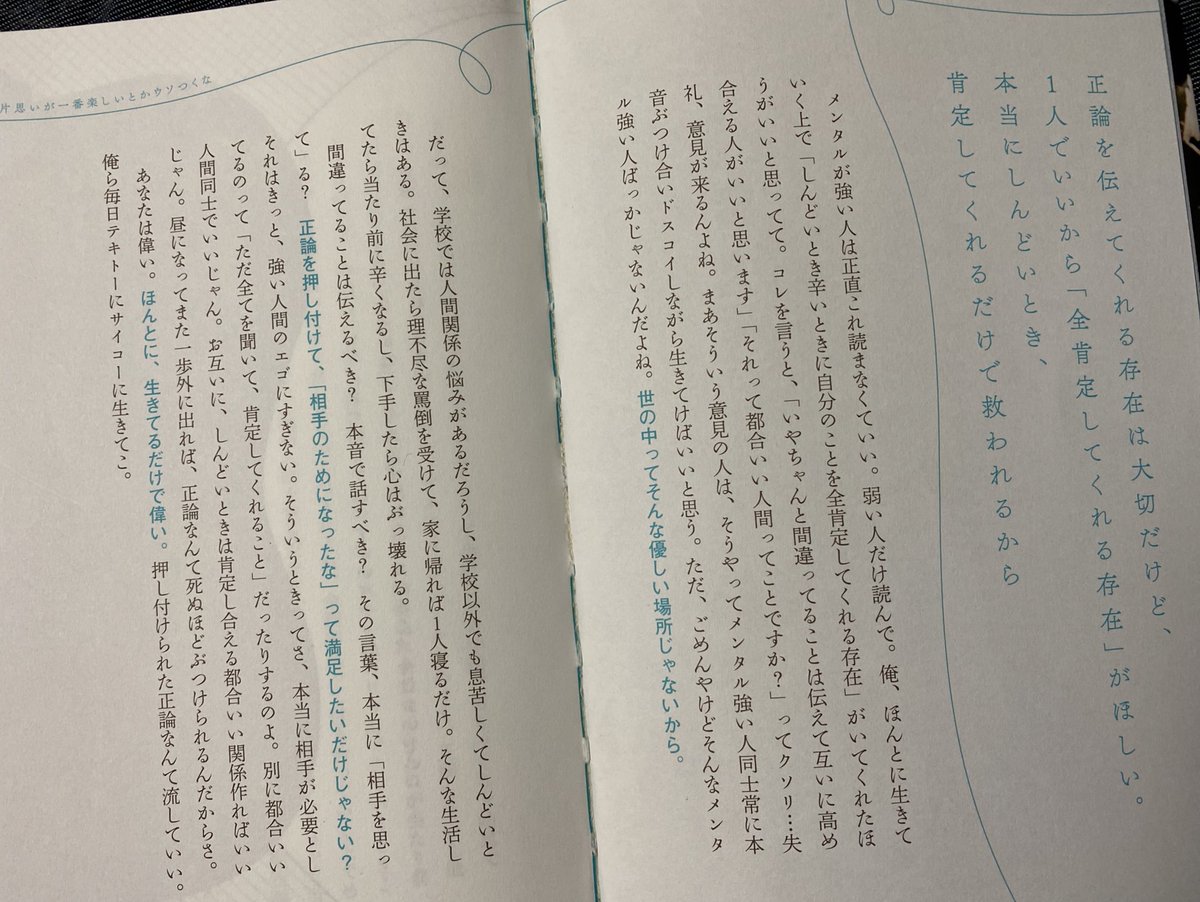 正論を伝えてくれる存在は大切だけど、
1人でいいから「全肯定してくれる存在」がほしい。
本当にしんどいとき、
肯定してくれるだけで救われるから
メンタルが強い人は正直これ読まなくていい。弱い人だけ読んで。俺、ほんとに生きて
いく上で「しんどいとき辛いときに自分のことを全肯定してくれる存在」がいてくれたほ
うがいいと思ってて。コレを言うと、「いやちゃんと間違ってることは伝えて互いに高め
合える人がいいと思います」「それって都合いい人間ってことですか?」ってクソリ…失
礼、意見が来るんよね。まあそういう意見の人は、そうやってメンタル強い人同士常に本
音ぶつけ合いドスコイしながら生きてけばいいと思う。ただ、ごめんやけどそんなメンタ
ル強い人ばっかじゃないんだよね。世の中ってそんな優しい場所じゃないから。
片思いが一番楽しいとかウソつくな
だって、学校では人間関係の悩みがあるだろうし、学校以外でも息苦しくてしんどいと
きはある。社会に出たら理不尽な罵倒を受けて、家に帰れば1人寝るだけ。そんな生活し
てたら当たり前に辛くなるし、下手したら心はぶっ壊れる。
間違ってることは伝えるべき? 本音で話すべき? その言葉、本当に「相手を思っ
て」る? 正論を押し付けて、「相手のためになったな」って満足したいだけじゃない?
それはきっと、強い人間のエゴにすぎない。そういうときってさ、本当に相手が必要とし
てるのって「ただ全てを聞いて、肯定してくれること」だったりするのよ。別に都合いい
人間同士でいいじゃん。お互いに、しんどいときは肯定し合える都合いい関係作ればいい
じゃん。昼になってまた一歩外に出れば、正論なんて死ぬほどぶつけられるんだからさ。
あなたは偉い。ほんとに、生きてるだけで偉い。押し付けられた正論なんて流していい。
俺ら毎日テキトーにサイコーに生きてこ。